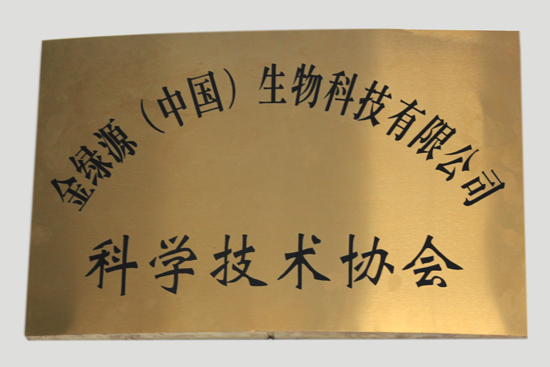 金绿源（中国）生物科技有限公司
科学技术协会